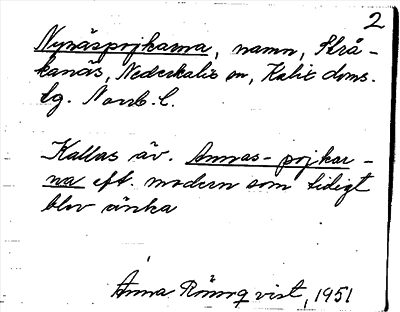 2
Nynäspojkarna, namn, Strå-
kanäs, Nederkalix sn, Kalix doms.
tg. Norrb. l.
Kallas äv. Annas-pojkar-
na eft. modern som tidigt
blev änka
Anna Rönnqvist, 1951